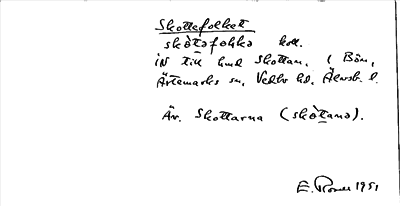 Skottefolket
skò̀təfoḷkə koll.
iN till hmd Skottan. i Bön,
Ärtemarks sn, Vedbo hd, Älvsb. l.
Äv. Skottarna (skòtanə).
E. 1951